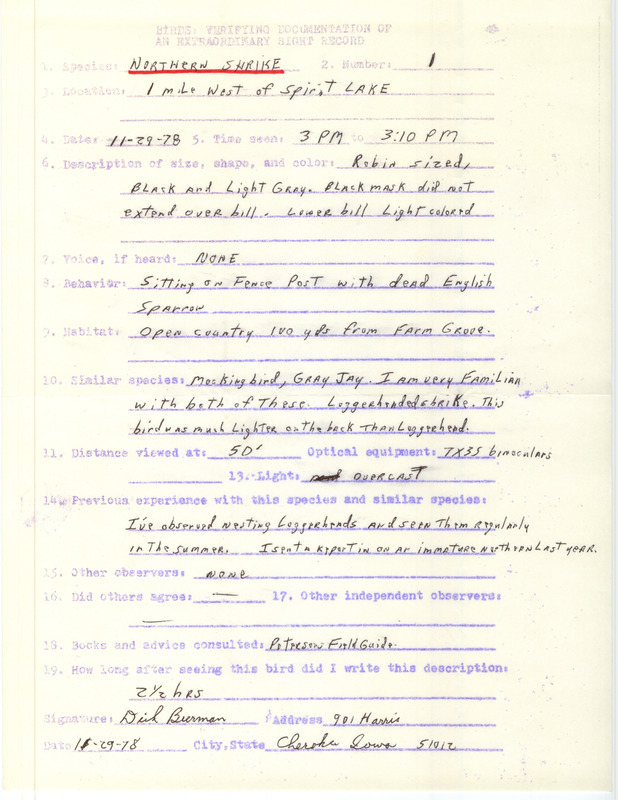 BIRDS: VERIFYING DOCUMENTATION OF
AN EXTRAORDINARY SIGHT RECORD
1. Species: NORTHERN SHRIKE 2. Number: 1
3. Location: 1 mile West of Spirit LAKE
4. Date: 11-29-78 5. Time seen: 3 PM to 3:10 PM
6. Description of size, shape, and color: Robin sized,
BLACK and Light Gray. BLACK mask did not
extend over bill. Lower bill Light colored
7. Voice, if heard: NONE
8. Behavior: Sitting on Fence Post with dead English
Sparrow
9. Habitat: Open country 100 yds from Farm Grove.
10. Similar species: Mockingbird, GRAY JAY. I am very Familiar
with both of These. Loggerheaded shrike. This
bird was much Lighter on the back Than Loggerhead.
11. Distance viewed at: 50' Optical equipment: 7X35 binoculars
13. Light: OVERCAST
14. Previous experience with this species and similar species:
I've observed nesting Loggerheads and seen Them Regularly
in The summer. I sent a report in on an immature Northern Last year.
15. Other observers: NONE
16. Did others agree: — 17. Other independent observers:
—
18. Books and advice consulted: Peterson Field Guide.
19. How long after seeing this bird did I write this description:
2 1/2 hrs
Signature: Dick Bierman Address 901 Harris
Date 11-29-78 City, State Cherokee Iowa 51012